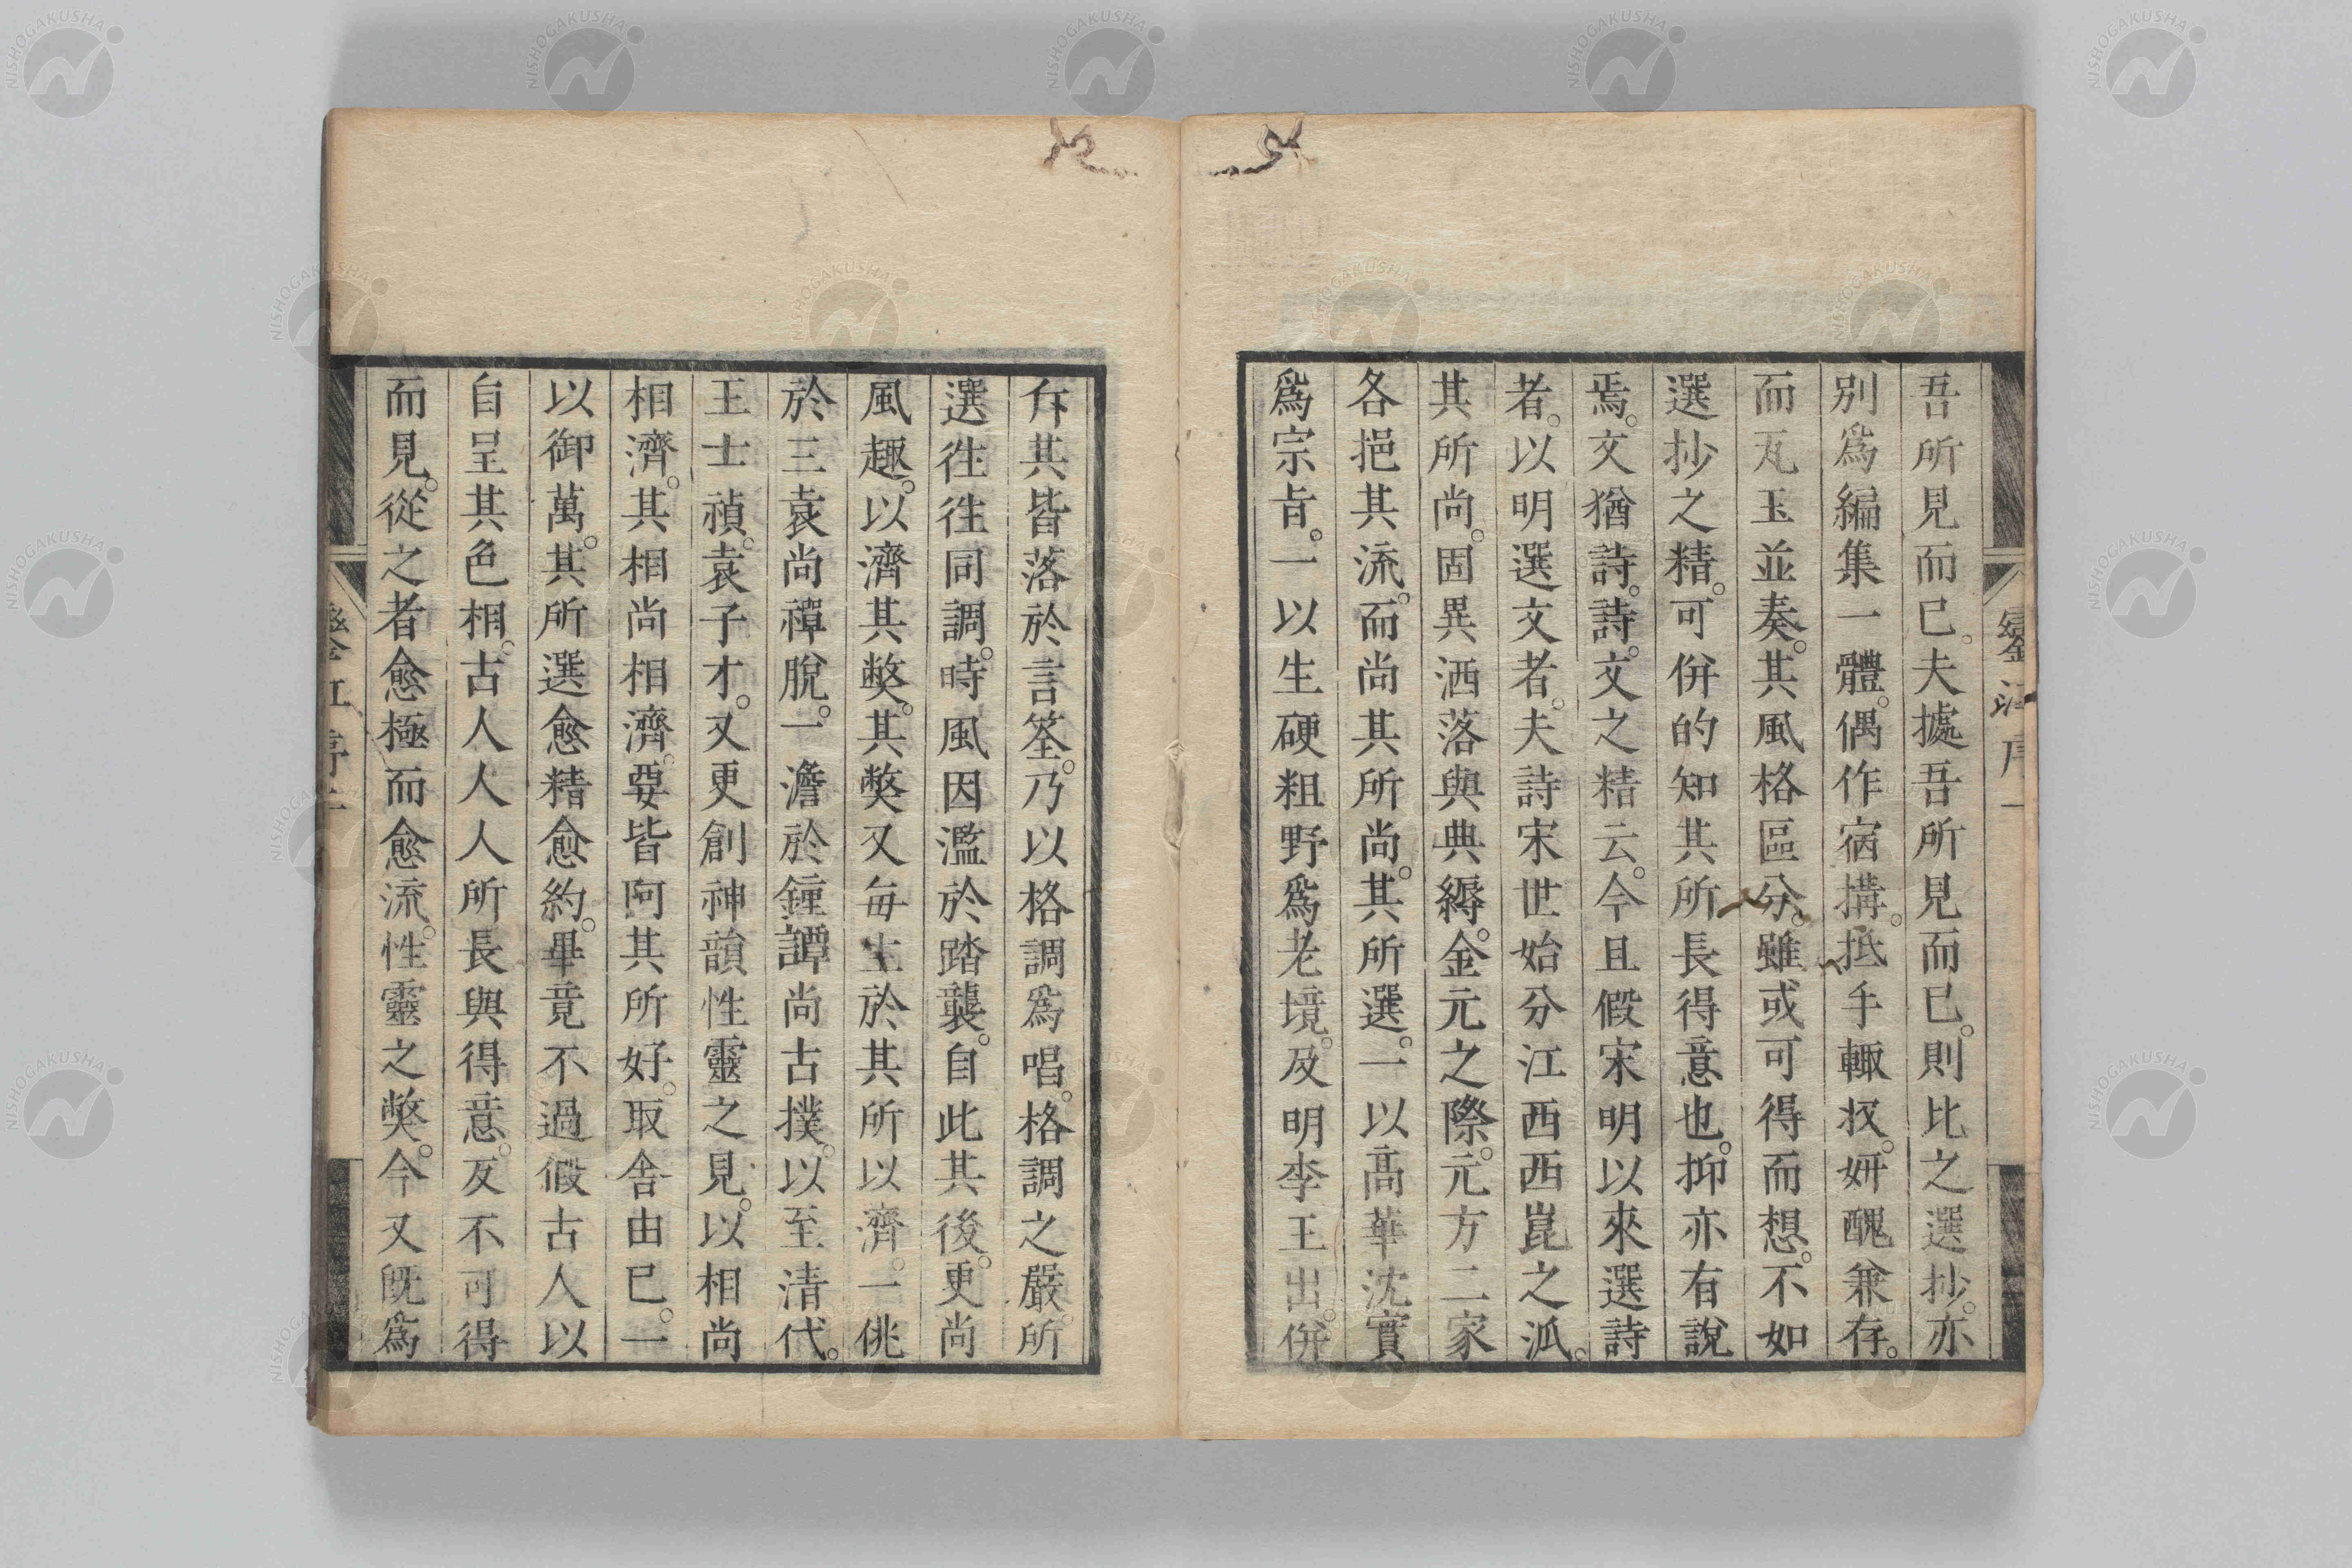 吾所見而已。夫據吾所見而已。則比之選抄。亦
別爲編集一體。偶作宿搆。抵手輙扠。妍醜兼存。
而瓦玉並奏。其風格區分。雖或可得而想。不如
選抄之精。可併的知其所長得意也。抑亦有說
焉。文猶詩。詩。文之精云。今且假宋明以來選詩
者。以明選文者。夫詩宋世始分江西西崑之派。
其所尚。固異洒落與典縟。金元之際。元方二家
各挹其流。而尚其所尚。其所選。一以高華沈實
爲宗旨。一以生硬粗野爲老境。及明李王出。併
斥其皆落於言筌。乃以格調爲唱。格調之嚴。所
選徃徃同調。時風因濫於踏襲。自此其後。更尚
風趣。以濟其獘。其獘又毎生於其所以濟。一佻
於三袁尚禪脫。一澹於鍾譚尚古撲。以至清代。
王士禎。袁子才。又更創神韻性靈之見。以相尚
相濟。其相尚相濟。要皆阿其所好。取舍由已。一
以御萬。其所選愈精愈約。畢竟不過假古人以
自呈其色相。古人人人所長與得意。反不可得
而見。從之者愈極而愈流。性靈之獘。今又旣爲